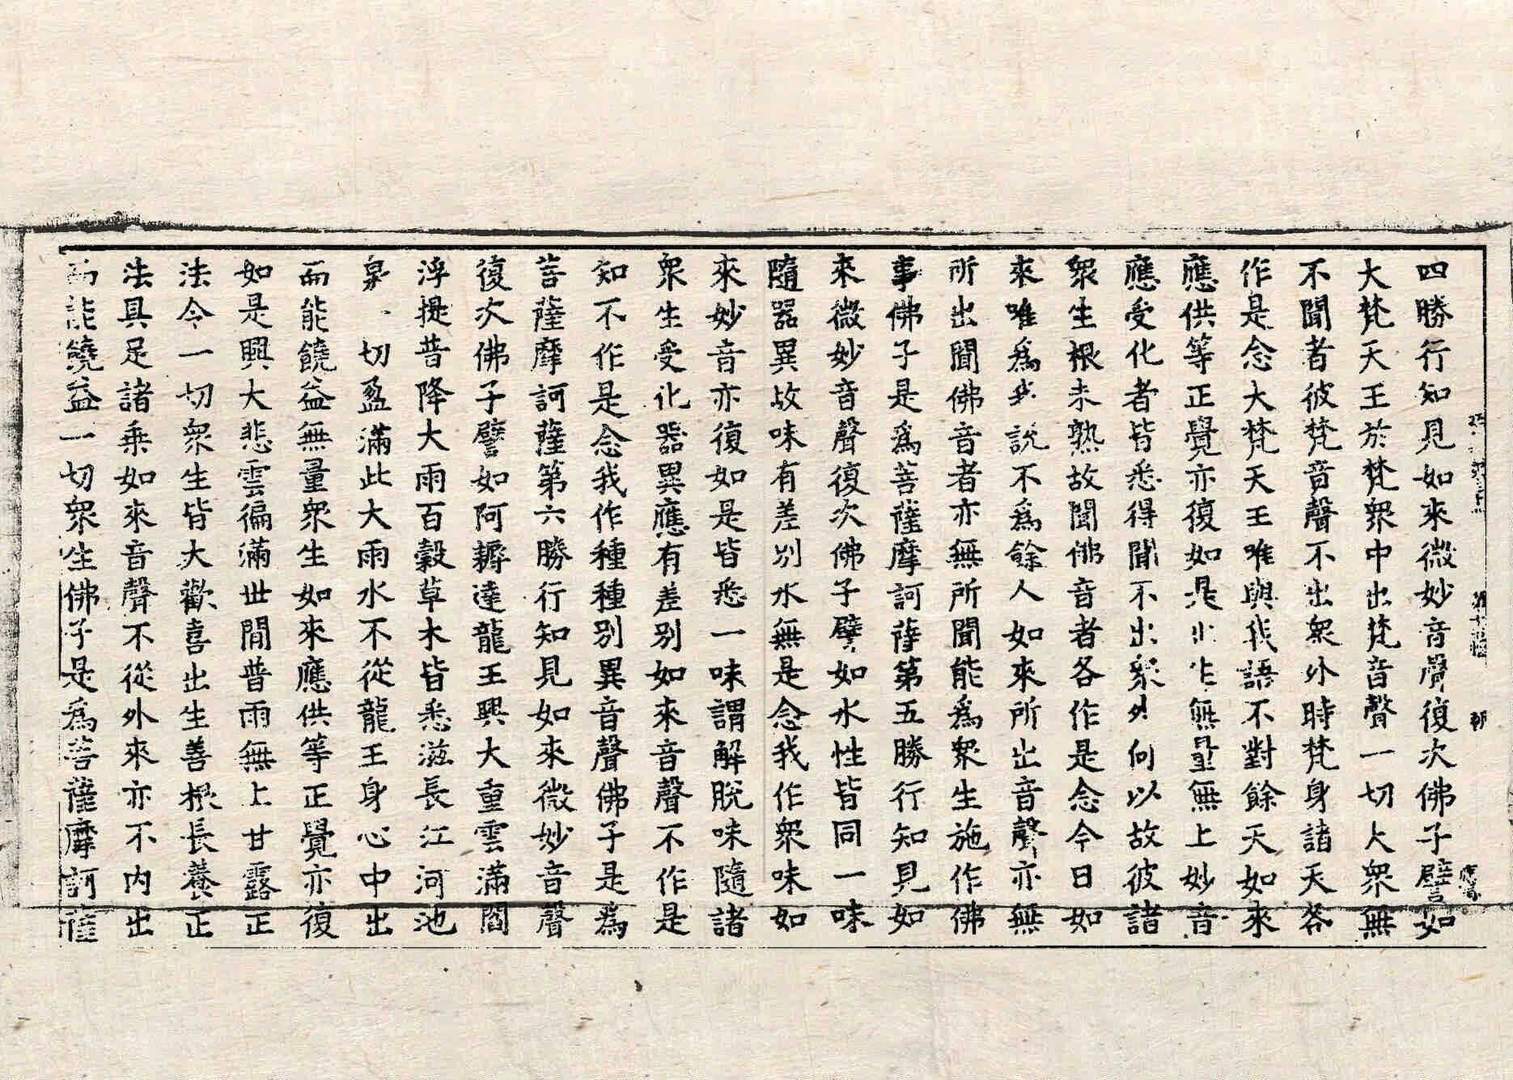 四勝行知見如來微妙音聲復次佛子譬如
大梵天王於梵衆中出梵音聲一切大衆無
不聞者彼梵音聲不出衆外時梵身諸天各
作是念大梵天王唯與我語不對餘天如來
應供等正覺亦復如是 無量無上妙音
應受化者皆悉得聞不出衆外何以故彼諸
衆生根未熟故聞佛音者各作是念今日如
來唯爲我說不爲餘人如來所出音聲亦無
所出聞佛音者亦無所聞能爲衆生施作佛
事佛子是爲菩薩摩訶薩第五勝行知見如
來微妙音聲復次佛子譬如水性皆同一味
隨器異故味有差別水無是念我作衆味如
來妙音亦復如是皆悉一味謂解脫味隨諸
衆生受化器異應有差別如來音聲不作是
知不作是念我作種種別異音聲佛子是爲
菩薩摩訶薩第六勝行知見如來微妙音聲
復次佛子譬如阿耨達龍王興大重雲滿閻
浮提普降大雨百穀草木皆悉滋長江河池
泉一切盈滿此大雨水不從龍王身心中出
而能饒益無量衆生如來應供等正覺亦復
如是興大悲雲徧滿世間普雨無上甘露正
法令一切衆生皆大歡喜出生善根長養正
法具足諸乘如來音聲不從外來亦不內出
而能饒益一切衆生佛子是爲菩薩摩訶薩